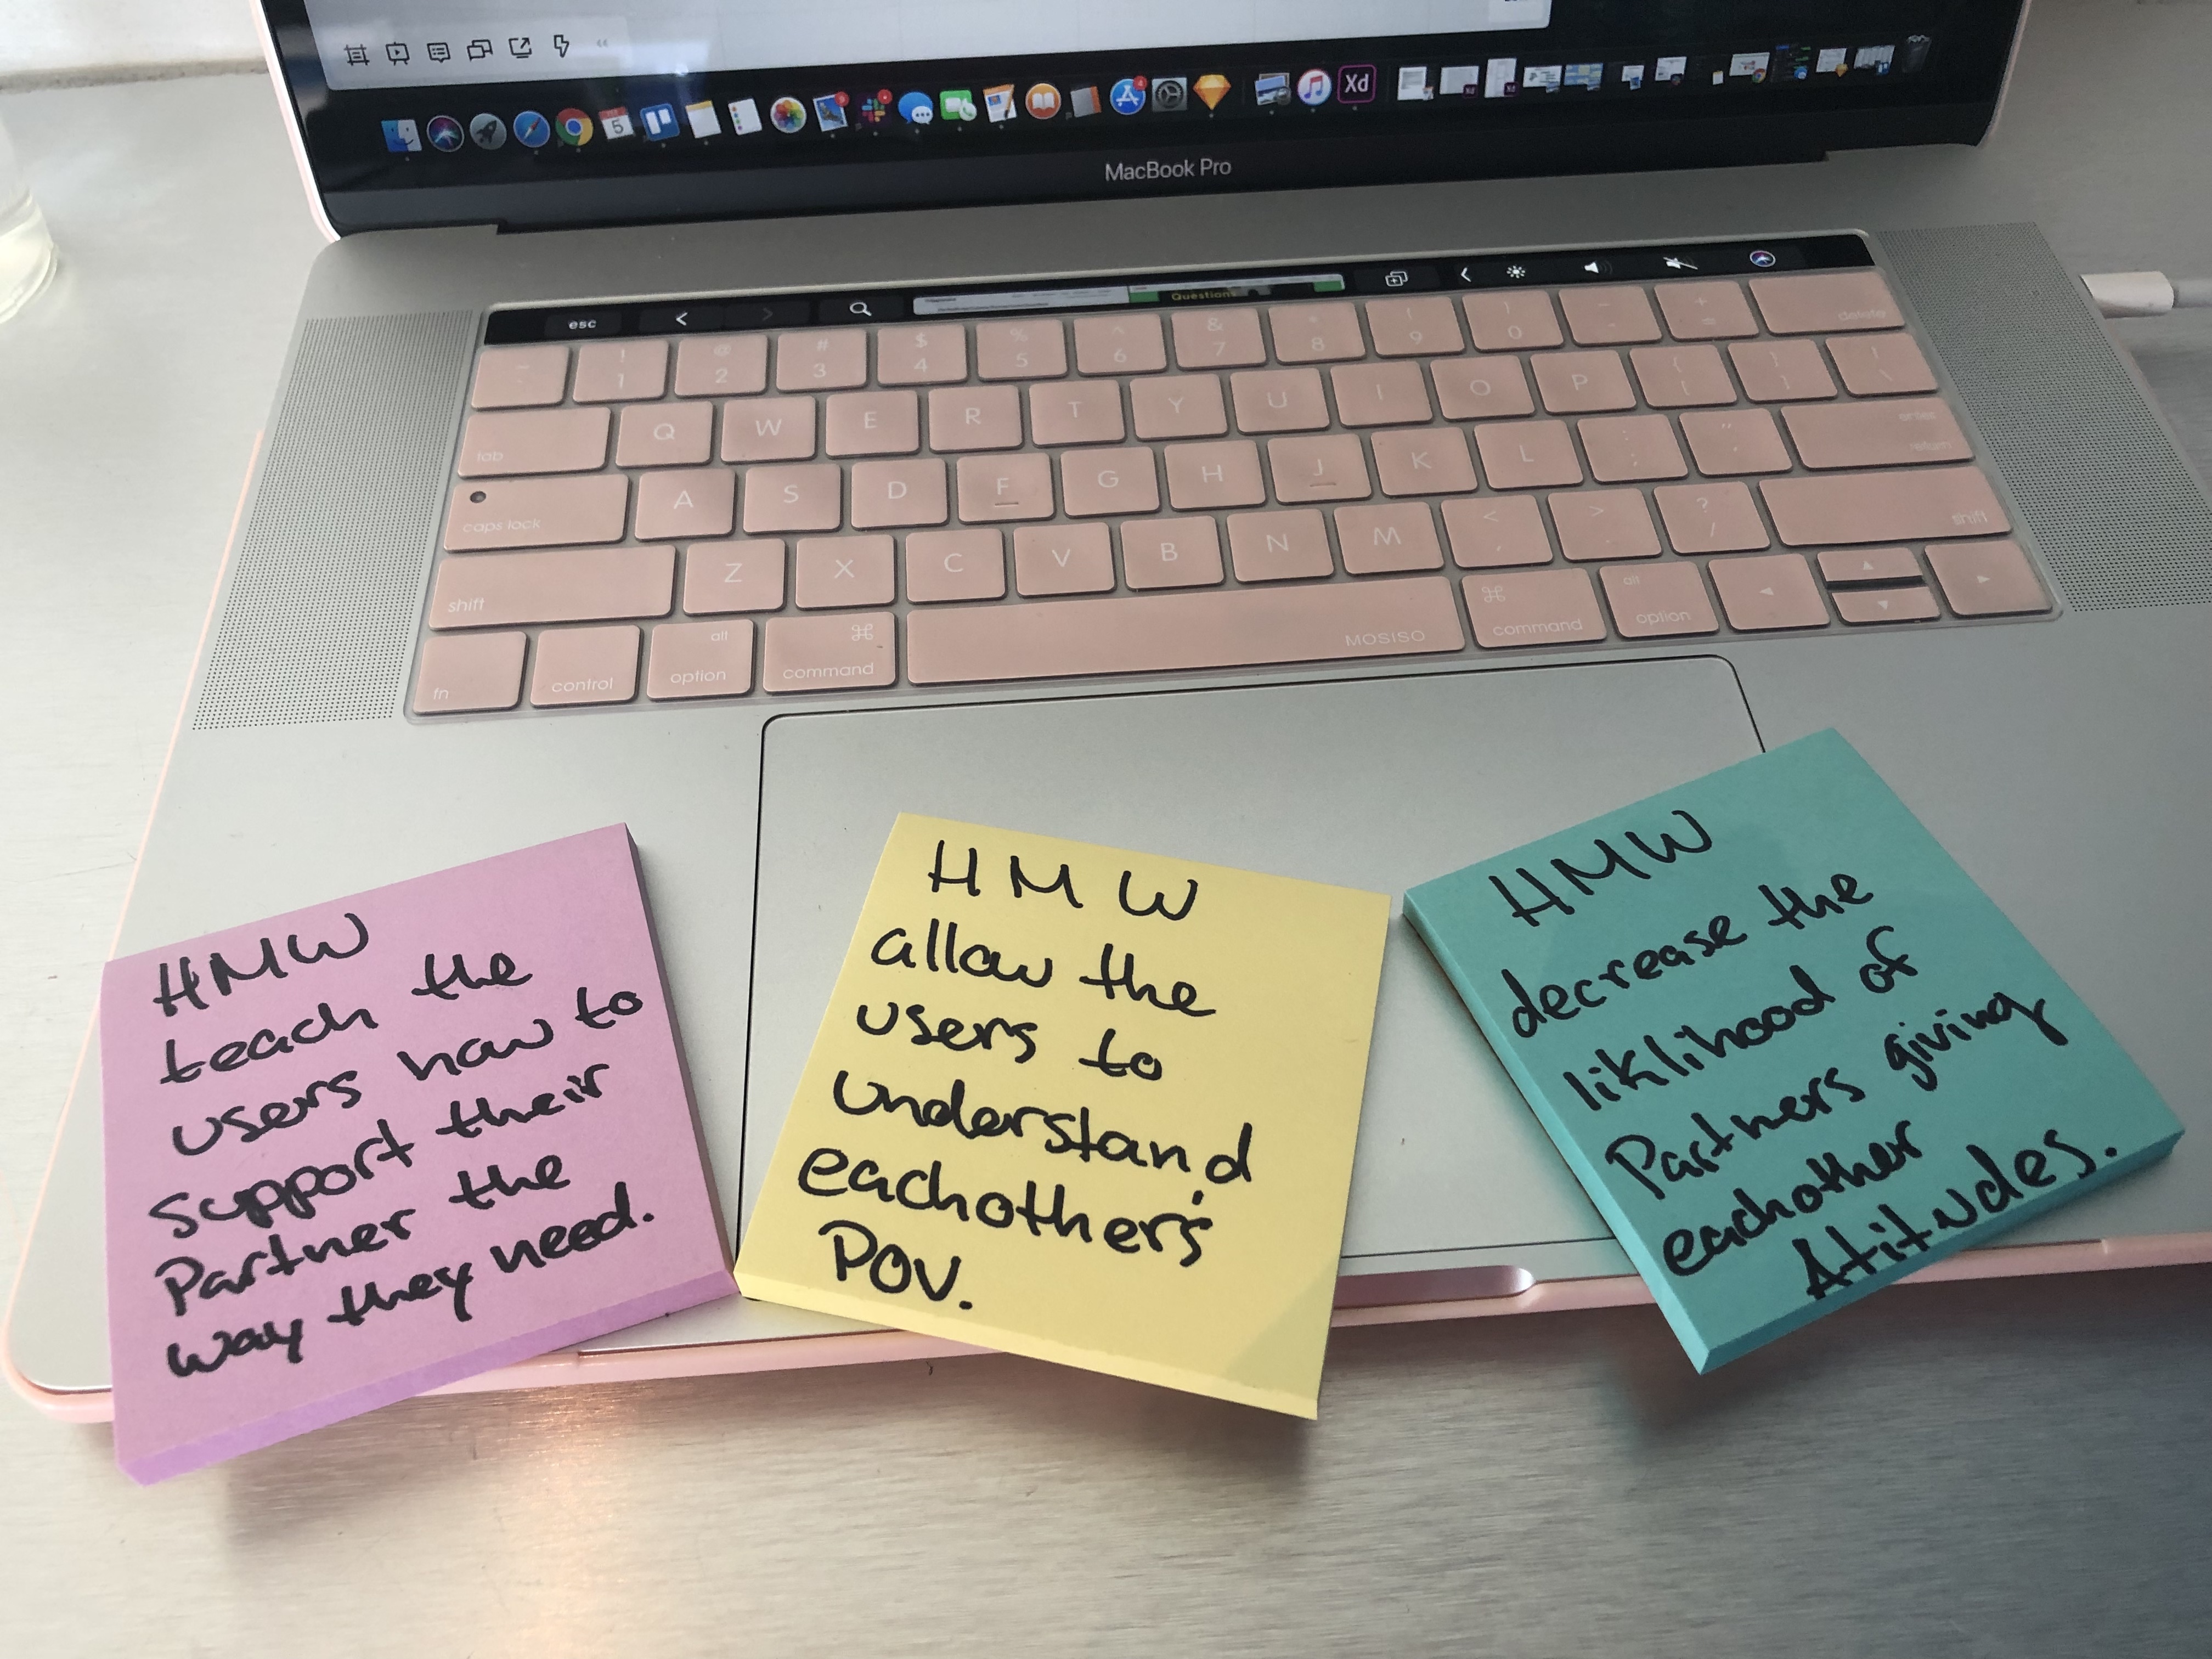 5
Xd
MacBook Pro
esc
Questions
! @ # $ % ^ & * ( ) - +
1 2 3 4 5 6 7 8 9 0
delete
tab
Q W E R T Y U I O P
enter
return
caps lock
A S D F G H J K L
shift
Z X C V B N M < > ?
, . /
shift
fn
control
alt
option
⌘
command
MOSISO
⌘
command
alt
option
HMW
teach the
users how to
support their
Partner the
way they need.
HMW
allow the
users to
understand
eachother's
POV.
HMW
decrease the
liklihood of
Partners giving
eachother
Atitudes.